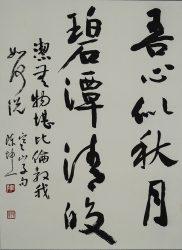 吾心似秋月
碧潭清皎
潔無物堪比倫教我
如何說
寒山子句